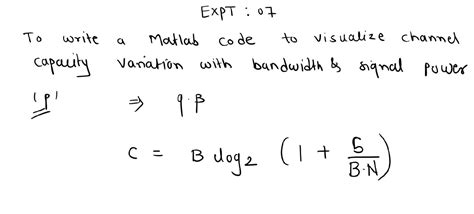 EXPT : 07
To write a Matlab code to visualize channel
capacity variation with bandwidth & signal power
'P' ⇒ q.B
C = B log₂ (1 + S/B·N)